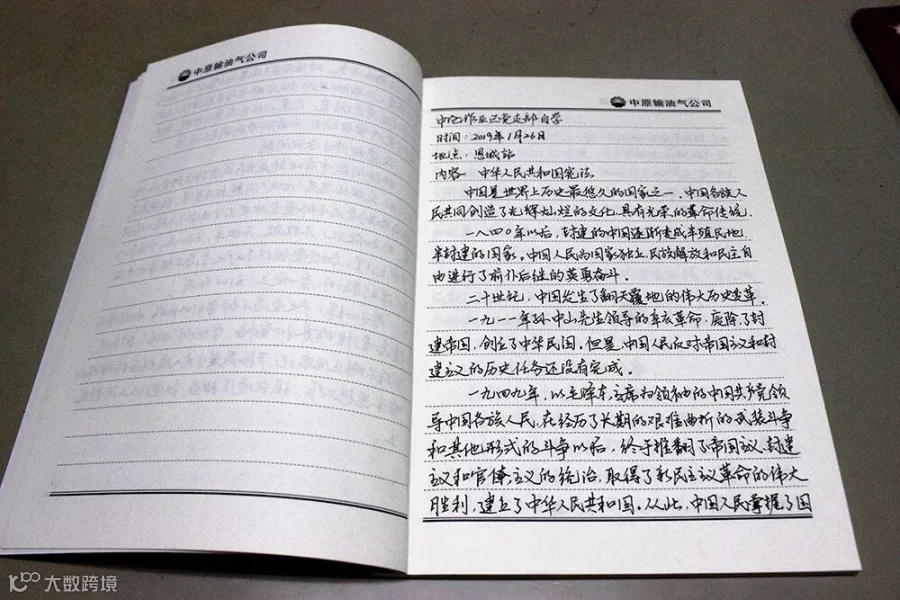 中原输油气公司
中原输油气公司
作业区党支部自学
时间:2019年1月26日
地点:恩城站
内容:中华人民共和国宪法。
中国是世界上历史最悠久的国家之一,中国各族人
民共同创造了光辉灿烂的文化,具有光荣的革命传统.
一八四〇年以后,封建的中国逐渐变成半殖民地
半封建的国家。中国人民为国家独立、民族解放和民主自
由进行了前仆后继的英勇奋斗.
二十世纪,中国发生了翻天覆地的伟大历史变革.
一九一一年孙中山先生领导的辛亥革命,废除了封
建帝国,创立了中华民国,但是,中国人民反对帝国主义和封
建主义的历史任务还没有完成。
一九四九年,以毛泽东主席为领袖的中国共产党领
导中国各族人民,在经历了长期的艰难曲折的武装斗争
和其他形式的斗争以后,终于推翻了帝国主义、封建
主义和官僚主义的统治,取得了新民主主义革命的伟大
胜利,建立了中华人民共和国。从此,中国人民掌握了国
大数跨境